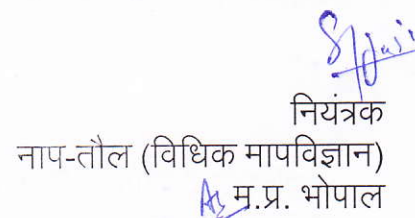 नियंत्रक
नाप-तौल (विधिक मापविज्ञान)
म.प्र. भोपाल